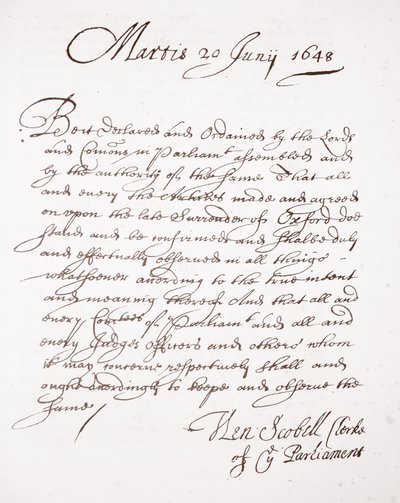 Martis 20 Junij 1648
Be it Declared and Ordained by the Lords
and Comons in Parliamt assembled and
by the authority of the same That all
and every the Articles made and agreed
on upon the late Surrender of Oxford doe
stand and be confirmed and shalbe duly
and effectually observed in all things
whatsoever according to the true intent
and meaning thereof And that all and
every of Parliamt and all and
every Judges officers and others whom
it may concerne respectively shall and
ought accordingly to keepe and observe the
same
Hen: Scobell Clerke
of ye Parliament